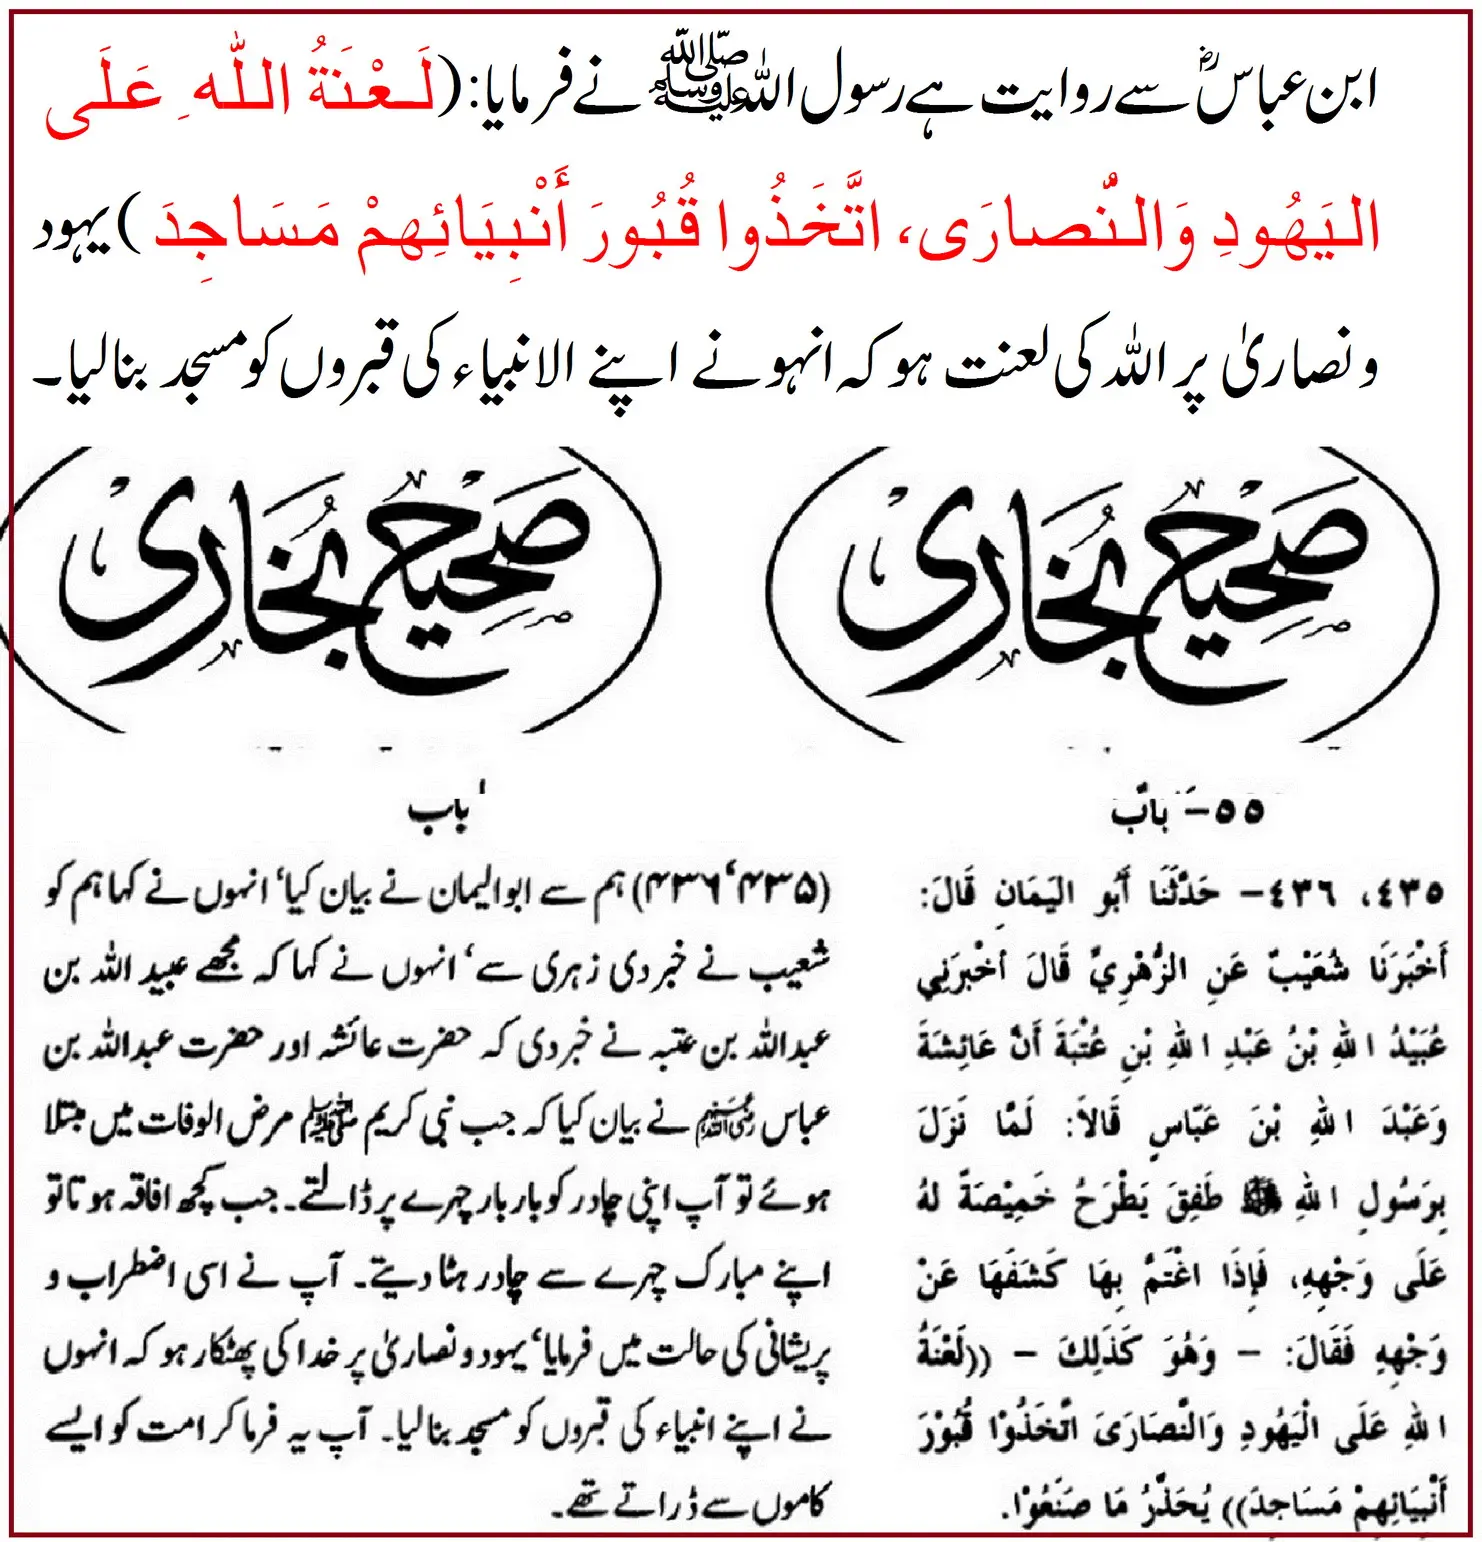 ابن عباسؓ سے روایت ہے رسول اللہ ﷺ نے فرمایا: (لَعْنَةُ اللَّهِ عَلَى
اليَهُودِ وَالنَّصارَى، اتَّخَذُوا قُبُورَ أَنْبِيَائِهِمْ مَسَاجِدَ) یہود
و نصاریٰ پر اللہ کی لعنت ہو کہ انہو نے اپنے الانبیاء کی قبروں کو مسجد بنا لیا۔
صحیح بخاری
صحیح بخاری
٥٥- بابٌ
٤٣٥، ٤٣٦- حَدَّثَنَا أَبُو اليَمَانِ قَالَ:
أَخْبَرَنَا شُعَيْبٌ عَنِ الزُّهْرِيِّ قَالَ أَخْبَرَنِي
عُبَيْدُ اللهِ بْنُ عَبْدِ اللهِ بْنِ عُتْبَةَ أَنَّ عَائِشَةَ
وَعَبْدَ اللهِ بْنَ عَبَّاسٍ قَالاَ: لَمَّا نَزَلَ
بِرَسُولِ اللهِ ﷺ طَفِقَ يَطْرَحُ خَمِيْصَةً لَهُ
عَلَى وَجْهِهِ، فَإِذَا اغْتَمَّ بِهَا كَشَفَهَا عَنْ
وَجْهِهِ فَقَالَ: - وَهُوَ كَذَلِكَ - ((لَعْنَةُ
اللهِ عَلَى الْيَهُودِ وَالنَّصَارَىَ اتَّخَذُوْا قُبُوْرَ
أَنْبِيَائِهِمْ مَسَاجِدَ)) يُحَذِّرُ مَا صَنَعُوْا.
باب
(۴۳۵، ۴۳۶) ہم سے ابوالیمان نے بیان کیا، انہوں نے کہا ہم کو
شعیب نے خبر دی زہری سے، انہوں نے کہا کہ مجھے عبید اللہ بن
عبداللہ بن عتبہ نے خبر دی کہ حضرت عائشہ اور حضرت عبداللہ بن
عباس رضی اللہ عنہم نے بیان کیا کہ جب نبی کریم ﷺ مرض الوفات میں مبتلا
ہوئے تو آپ اپنی چادر کو بار بار چہرے پر ڈالتے۔ جب کچھ افاقہ ہوتا تو
اپنے مبارک چہرے سے چادر ہٹا دیتے۔ آپ نے اسی اضطراب و
پریشانی کی حالت میں فرمایا، یہود و نصاریٰ پر خدا کی پھٹکار ہو کہ انہوں
نے اپنے انبیاء کی قبروں کو مسجد بنا لیا۔ آپ یہ فرما کر امت کو ایسے
کاموں سے ڈراتے تھے۔